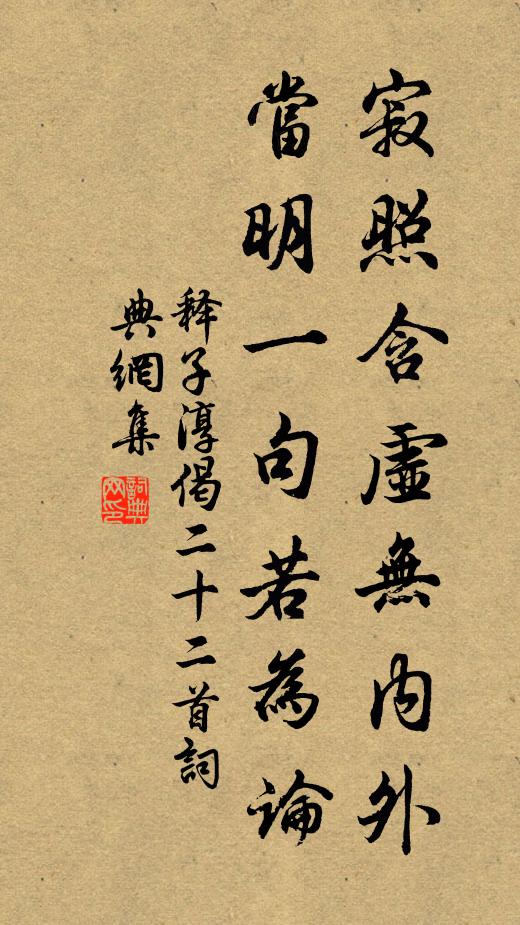 寂照含虛無內外
當明一句若為論
释子淳偈二十二首詞
典網集
詞典網印